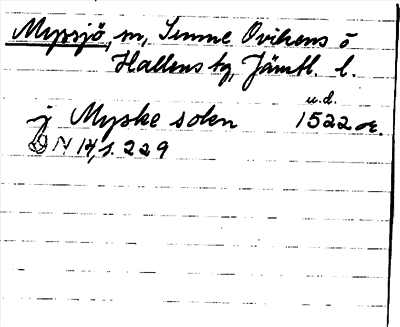 Myrsjö, m, Sunne Ovikens o
Hallens tg, Jämtl. l.
u.d.
j Myske solen 1522 or.
DN 14, s. 229